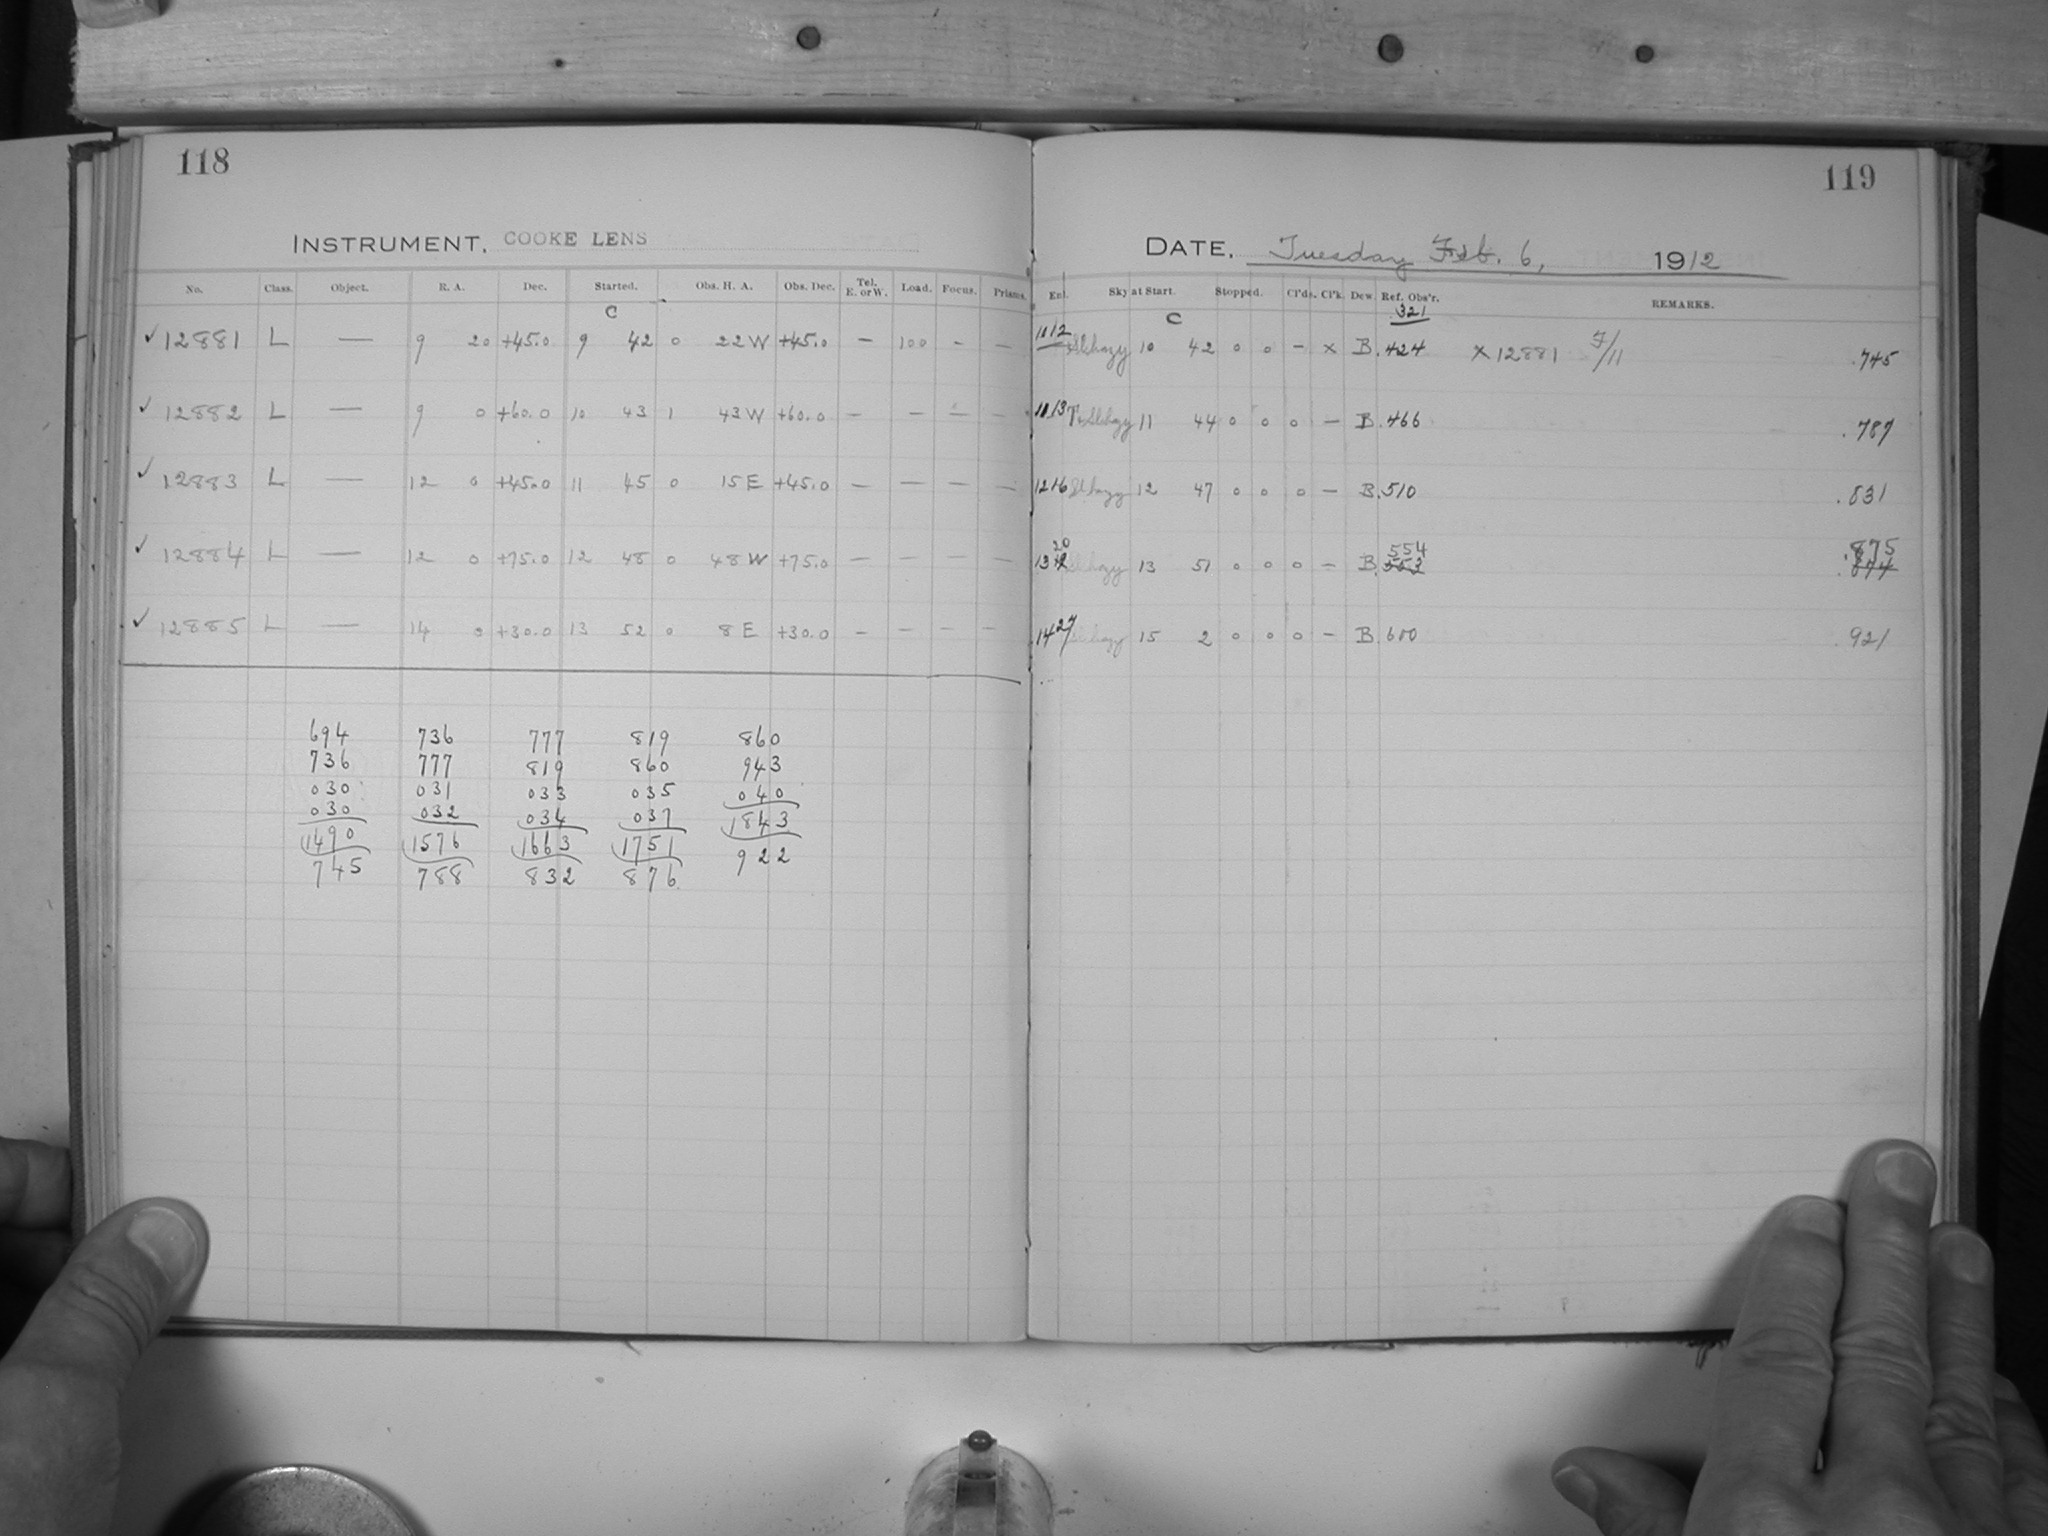 118
INSTRUMENT, COOKE LENS
No. Class. Object. R. A. Dec. Started. Obs. H. A. Obs. Dec. Tel. E. or W. Load. Focus. Prisms.
C
✓ 12881 L — 9 20 +45.0 9 42 0 22 W +45.0 — 100 — —
✓ 12882 L — 9 0 +60.0 10 43 1 43 W +60.0 — — — —
✓ 12883 L — 12 0 +45.0 11 45 0 15 E +45.0 — — — —
✓ 12884 L — 12 0 +75.0 12 48 0 48 W +75.0 — — — —
✓ 12885 L — 14 0 +30.0 13 52 0 8 E +30.0 — — — —
694 736 777 819 860
736 777 819 860 943
030 031 033 035 040
030 032 034 037 1843
1490 1576 1663 1751 922
745 788 832 876
119
DATE, Tuesday Feb. 6, 1912
Ent. Sky at Start. Stopped. Cl'ds. Cl'k. Dew. Ref. Obs'r. REMARKS.
C .321
10 12 Sl.hazy 10 42 0 0 — × B .424 × 12881 7/11 .745
11 13 Sl.hazy 11 44 0 0 0 — B .466 .787
12 16 Sl.hazy 12 47 0 0 0 — B .510 .831
20 554 .875
13 Sl.hazy 13 51 0 0 0 — B .553 .874
14 27 Sl.hazy 15 2 0 0 0 — B .600 .921